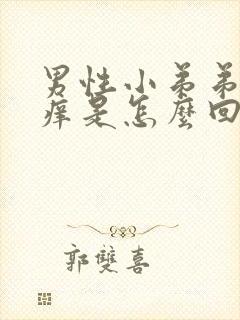 男性小弟弟
痒是怎麼回
郭雙喜